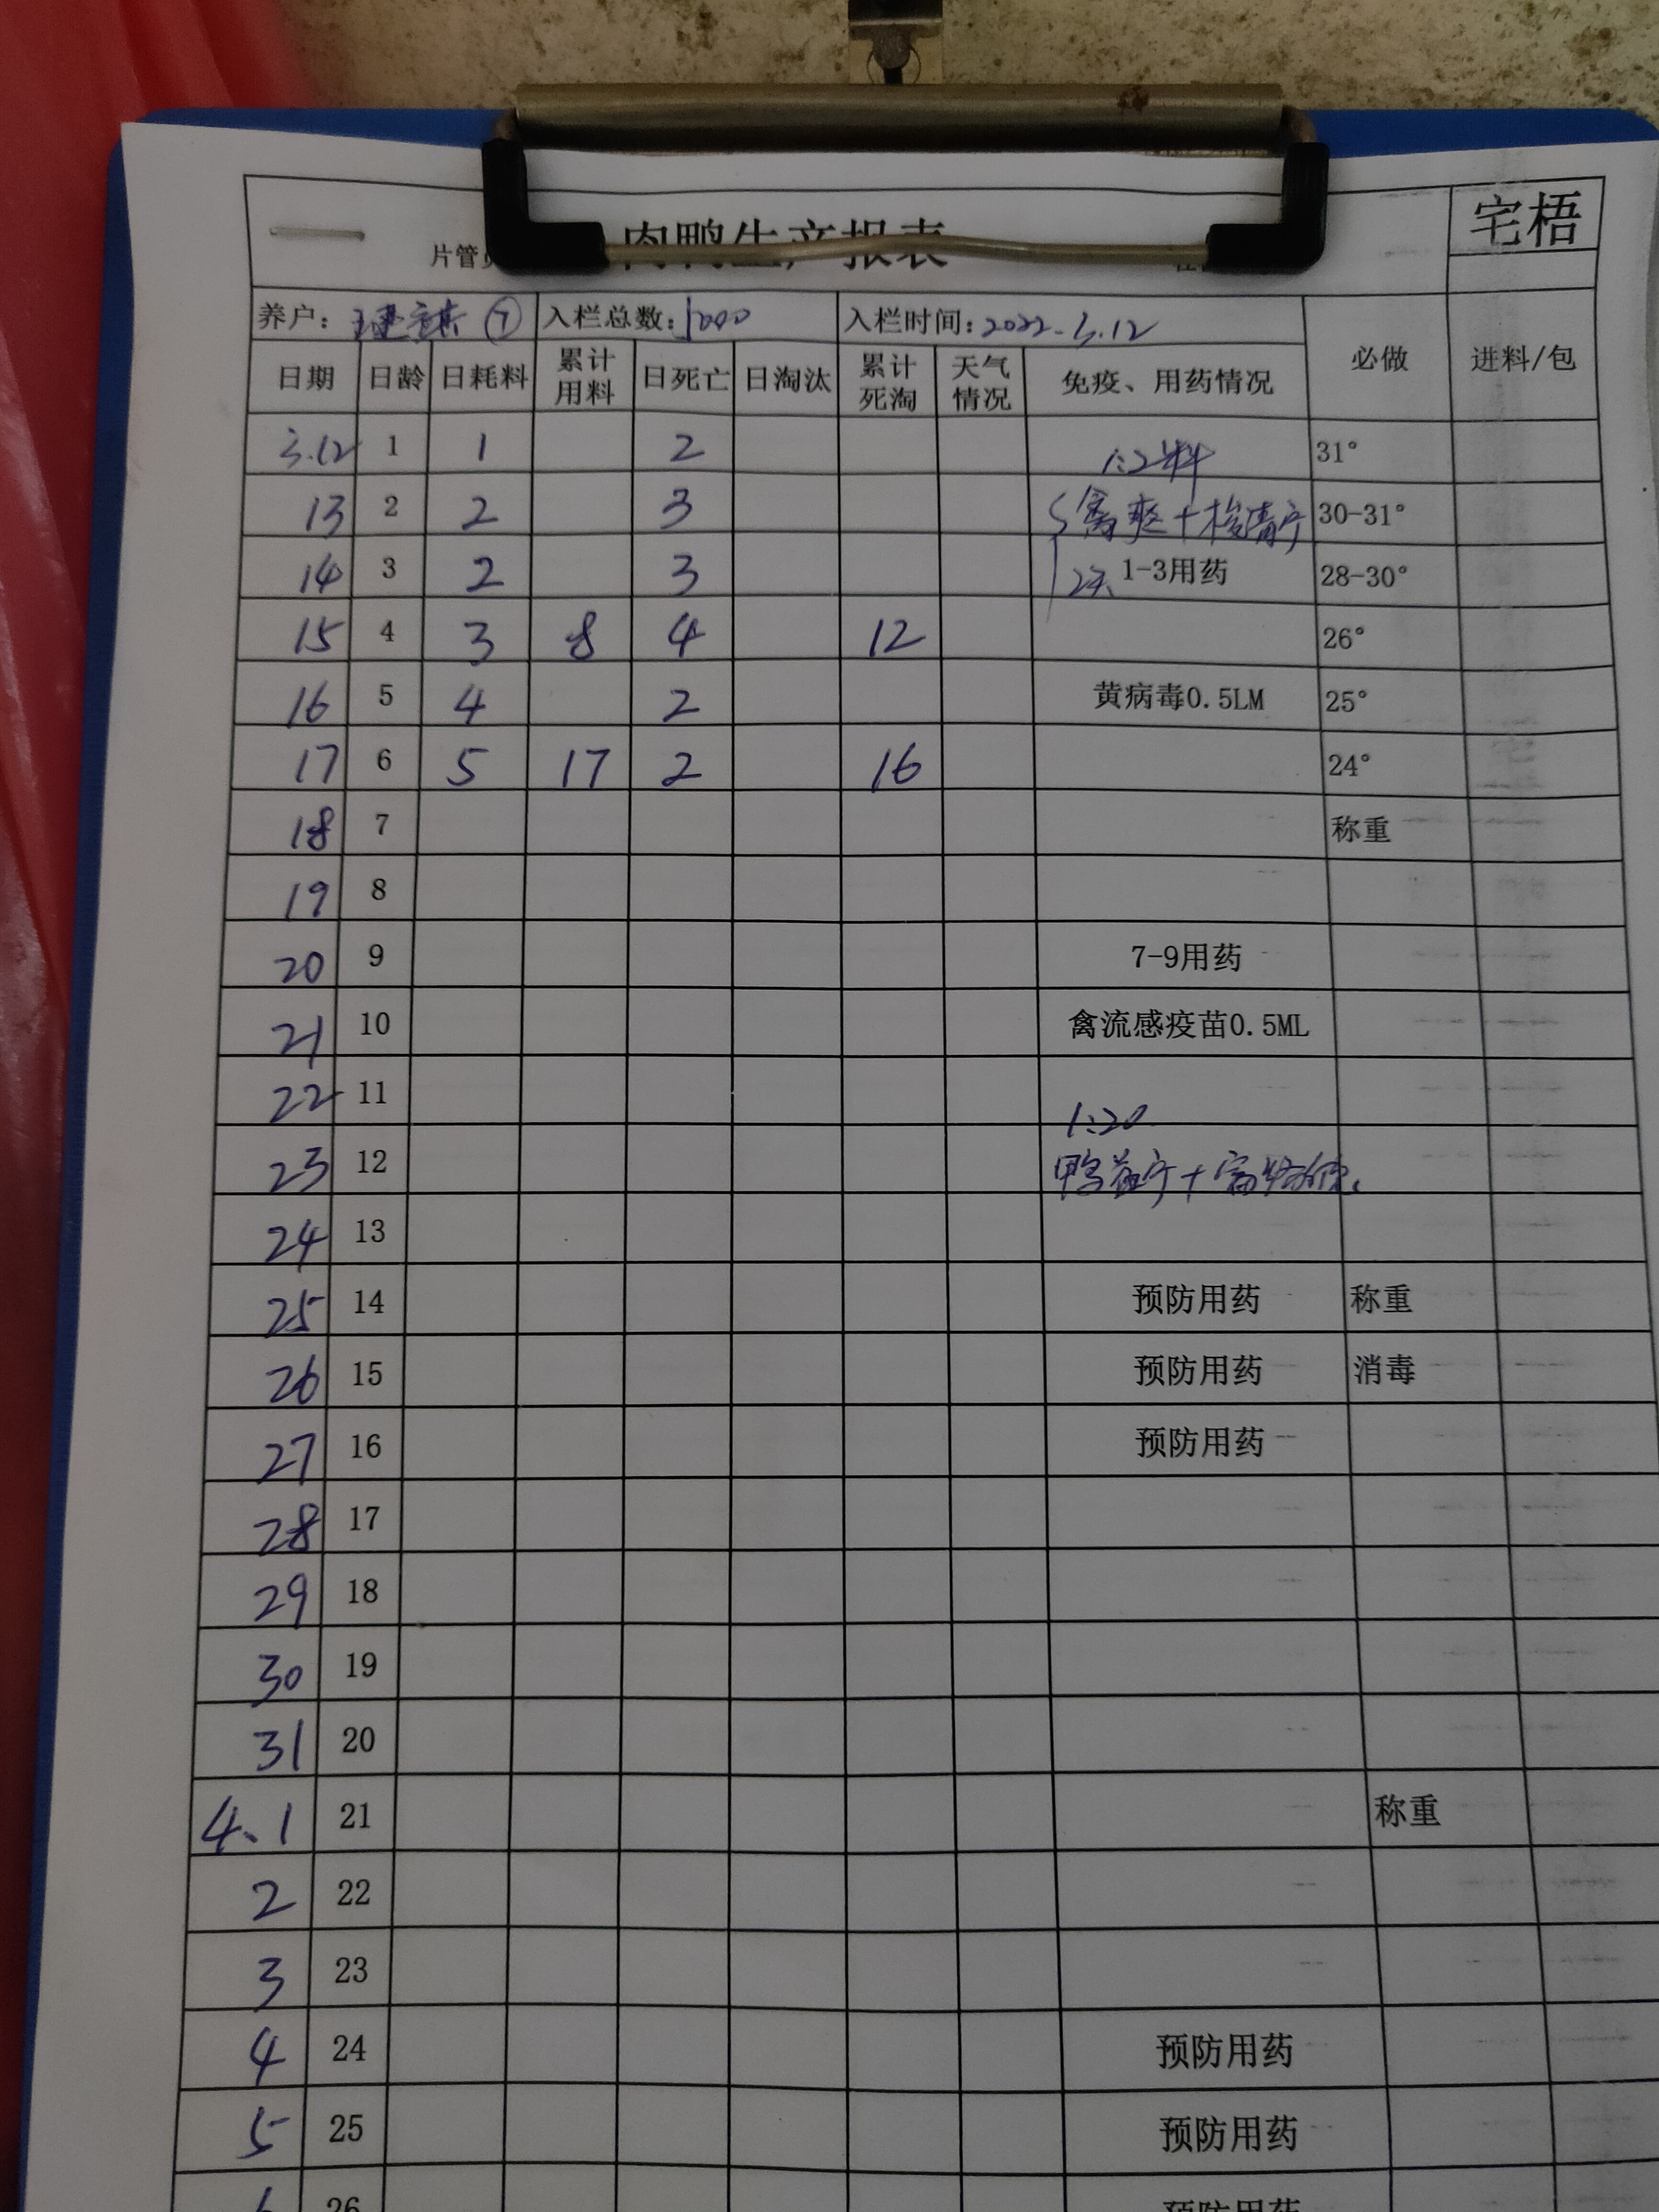 宅梧
肉鸭生产报表
片管员
养户： ⑦ 入栏总数： 入栏时间：2022.3.12
日期 日龄 日耗料 累计用料 日死亡 日淘汰 累计死淘 天气情况 免疫、用药情况 必做 进料/包
3.12 1 1 2 1:2料 31°
13 2 2 3 禽爽+ 30-31°
14 3 2 3 2天 1-3用药 28-30°
15 4 3 8 4 12 26°
16 5 4 2 黄病毒0.5LM 25°
17 6 5 17 2 16 24°
18 7 称重
19 8
20 9 7-9用药
21 10 禽流感疫苗0.5ML
22 11 1:20
23 12 鸭益宁+
24 13
25 14 预防用药 称重
26 15 预防用药 消毒
27 16 预防用药
28 17
29 18
30 19
31 20
4.1 21 称重
2 22
3 23
4 24 预防用药
5 25 预防用药
26 预防用药